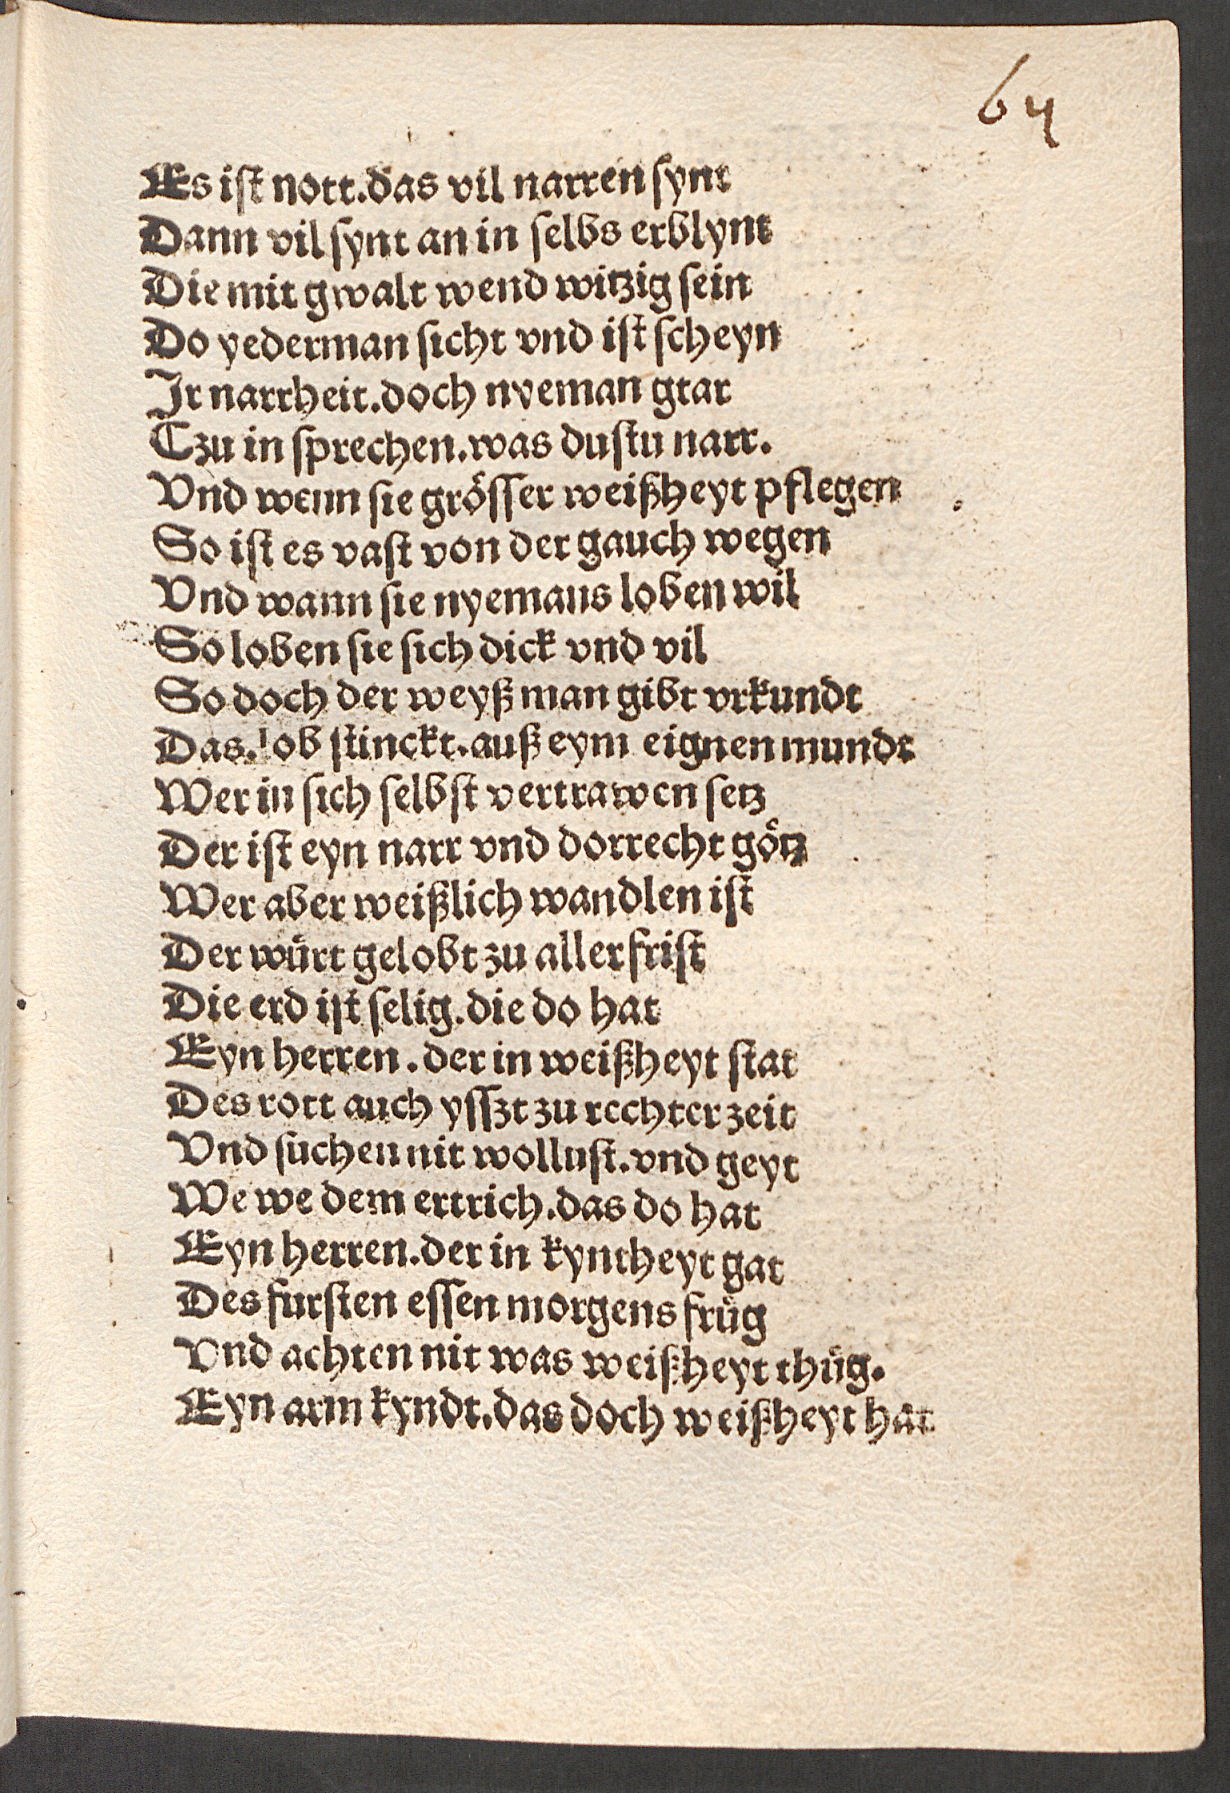 64
Es ist nott.das vil narren synt
Dann vil synt an in selbs erblynt
Die mit gwalt wend witzig sein
Do yederman sicht vnd ist scheyn
Ir narrheit.doch nyeman gtar
Czu in sprechen.was dustu narr.
Vnd wenn sie grösser weißheyt pflegen
So ist es vast von der gauch wegen
Vnd wann sie nyemans loben wil
So loben sie sich dick vnd vil
So doch der weyß man gibt vrkundt
Das.lob stinckt.auß eym eignen mundt
Wer in sich selbst vertrawen setz
Der ist eyn narr vnd dorrecht götz
Wer aber weißlich wandlen ist
Der würt gelobt zu aller frist
Die erd ist selig.die do hat
Eyn herren.der in weißheyt stat
Des rott auch ysszt zu rechter zeit
Vnd suchen nit wollust.vnd geyt
We we dem ertrich.das do hat
Eyn herren.der in kyntheyt gat
Des fursten essen morgens früg
Vnd achten nit was weißheyt thüg.
Eyn arm kyndt.das doch weißheyt hat